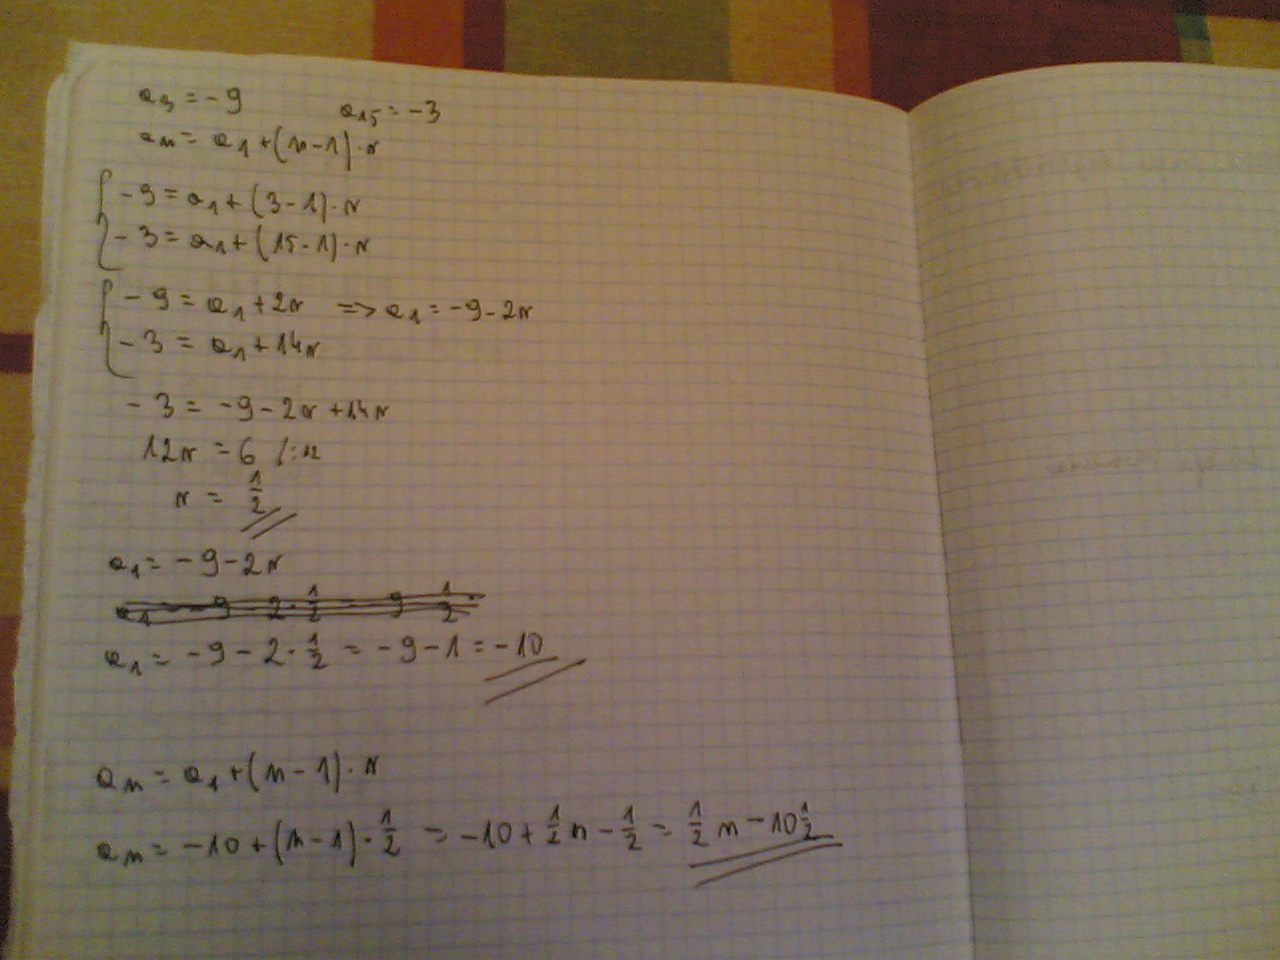 a₃ = -9 a₁₅ = -3
aₙ = a₁ + (n-1)·r
-9 = a₁ + (3-1)·r
-3 = a₁ + (15-1)·r
-9 = a₁ + 2r => a₁ = -9-2r
-3 = a₁ + 14r
-3 = -9-2r+14r
12r = 6 /:12
r = 1/2
a₁ = -9-2r
a₁ = -9-2·1/2 = -9-1 = -10
aₙ = a₁ + (n-1)·r
aₙ = -10 + (n-1)·1/2 = -10 + 1/2 n - 1/2 = 1/2 n - 10 1/2